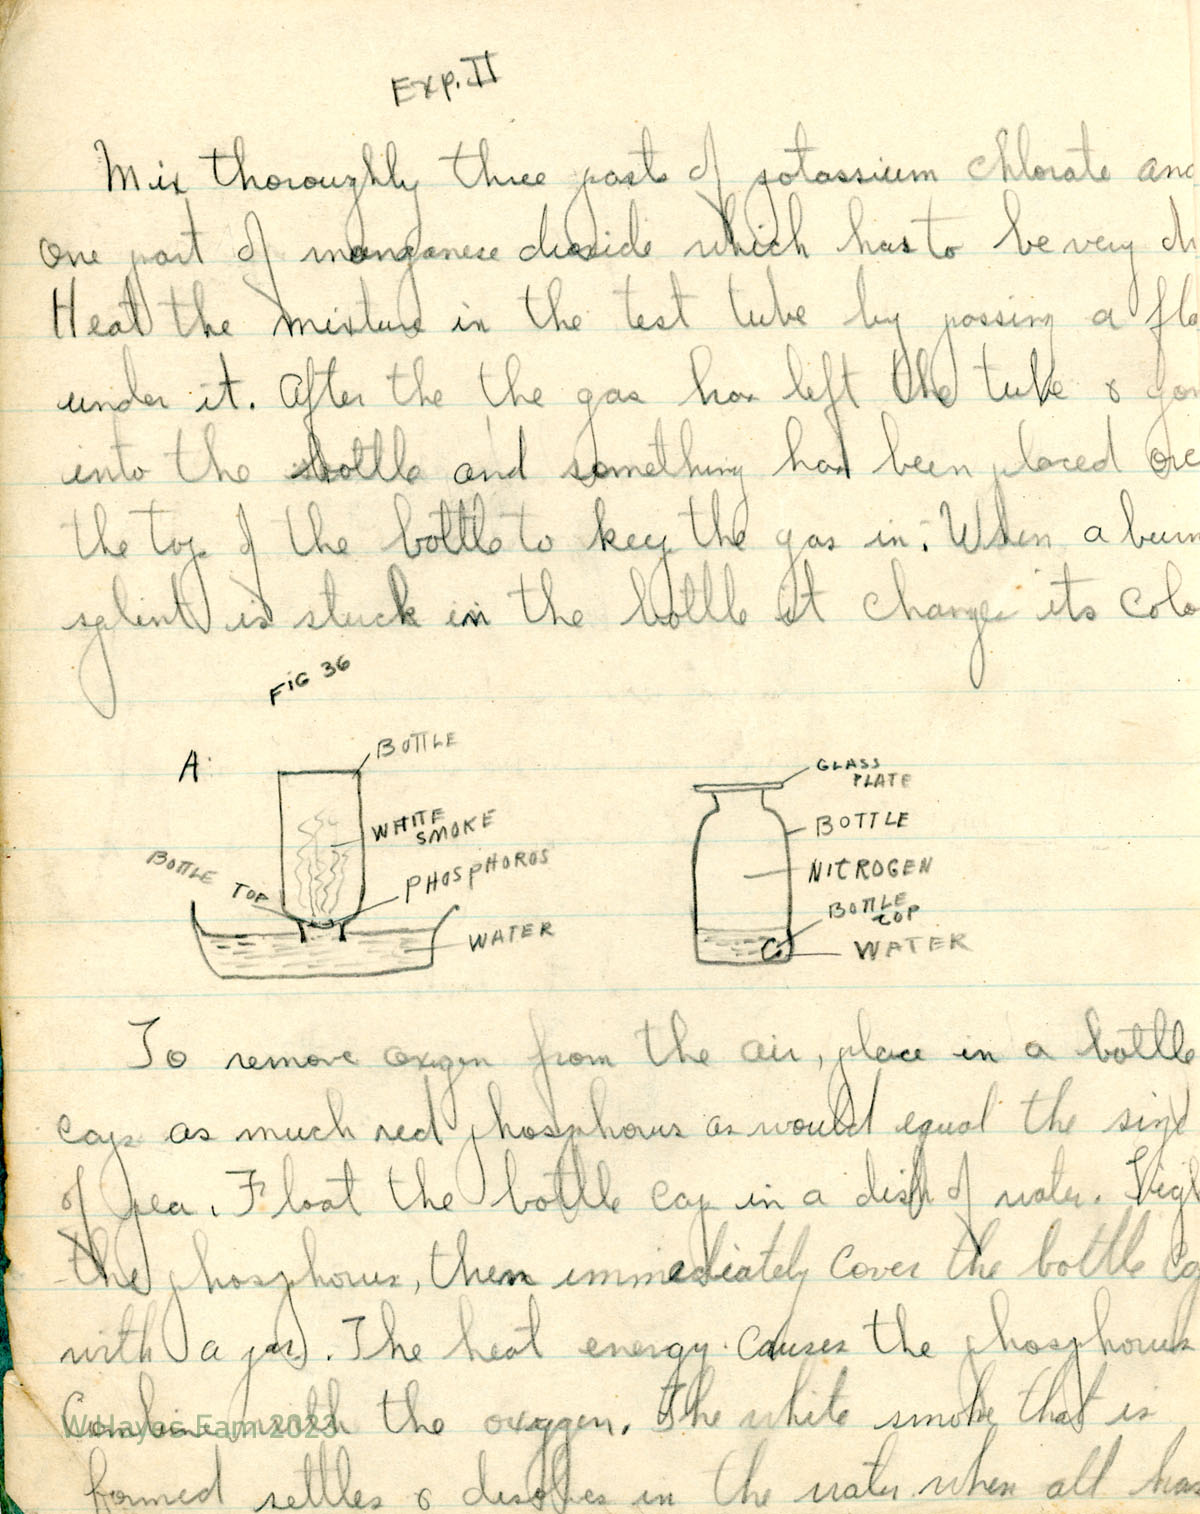 Exp. II
Mix thoroughly three parts of potassium chlorate and
one part of manganese dioxide which has to be very
Heat the mixture in the test tube by passing a
under it. After the the gas has left the tube &
into the bottle and something has been placed
the top of the bottle to keep the gas in. When a
splint is stuck in the bottle it change its
FIG 36
A.
BOTTLE
WHITE SMOKE
BOTTLE TOP
PHOSPHOROS
WATER
GLASS PLATE
BOTTLE
NITROGEN
BOTTLE TOP
WATER
To remove oxgen from the air, place in a bottle
cap as much red phosphorus as would equal the size
of pea. Float the bottle cap in a dish of water.
the phosphorus, then immediately cover the bottle
with a jar. The heat energy causes the phosphorus
Combine with the oxygen. The white smoke that is
formed settles & desolves in the water when all has
W.Hayes Fam 2023